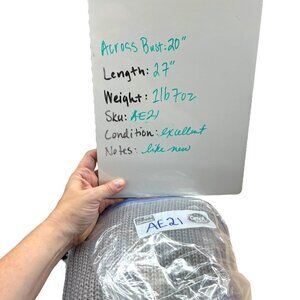 Across Bust: 20"
Length: 27"
Weight: 1lb 7oz
Sku: AE21
Condition: excellent
Notes: like new
AE21